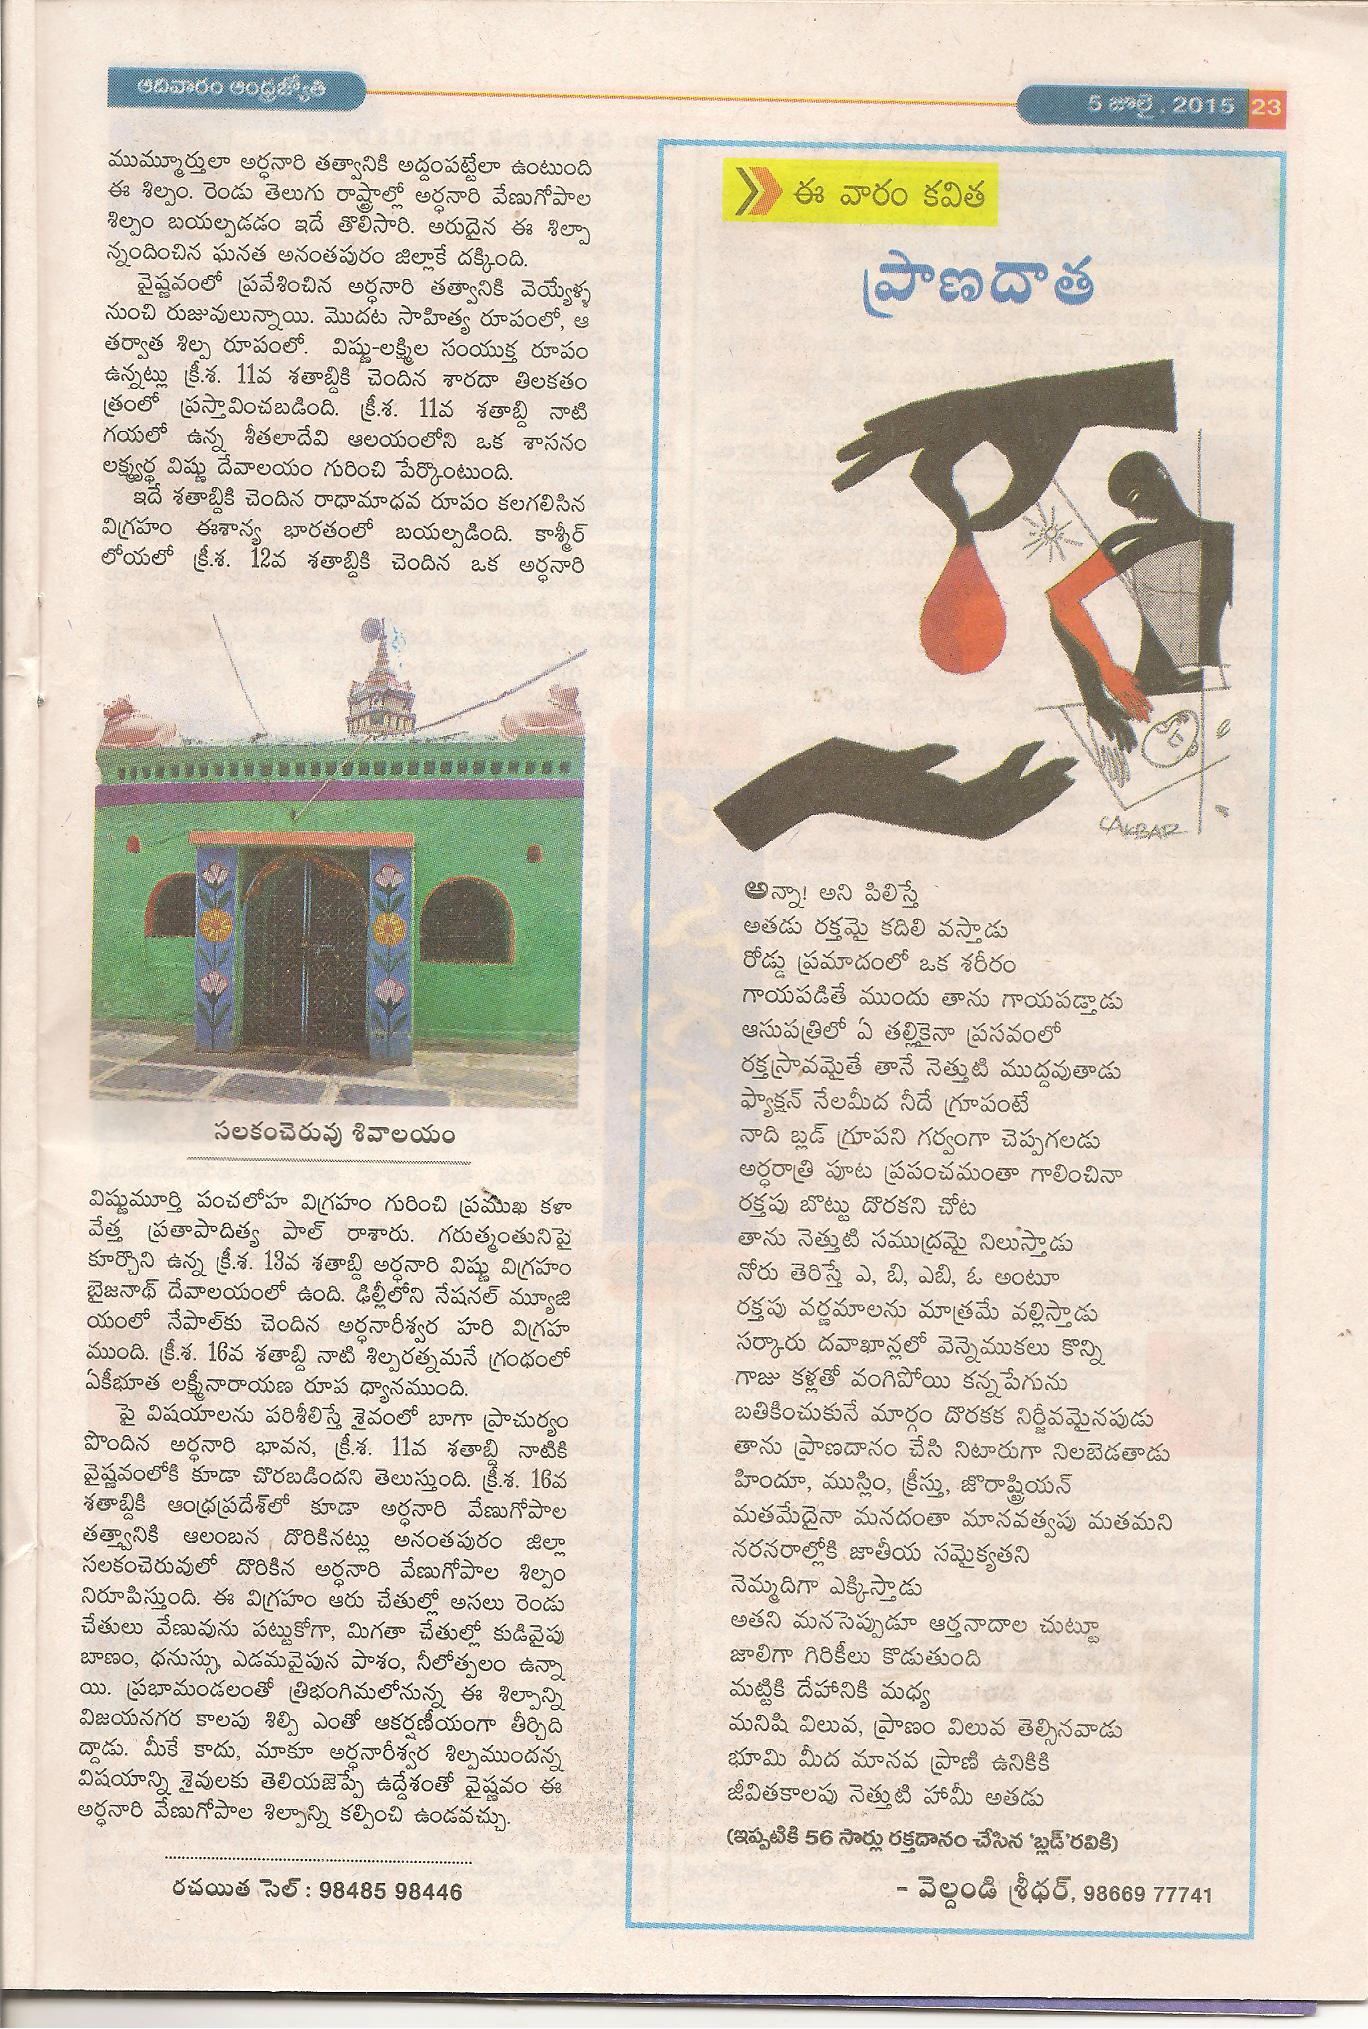 ఆదివారం ఆంధ్రజ్యోతి
5 జూలై . 2015 23
ముమ్మూర్తులా అర్ధనారి తత్వానికి అద్దంపట్టేలా ఉంటుంది
ఈ శిల్పం. రెండు తెలుగు రాష్ట్రాల్లో అర్ధనారి వేణుగోపాల
శిల్పం బయల్పడడం ఇదే తొలిసారి. అరుదైన ఈ శిల్పా
న్నందించిన ఘనత అనంతపురం జిల్లాకే దక్కింది.
వైష్ణవంలో ప్రవేశించిన అర్ధనారి తత్వానికి వెయ్యేళ్ళ
నుంచి రుజువులున్నాయి. మొదట సాహిత్య రూపంలో, ఆ
తర్వాత శిల్ప రూపంలో. విష్ణు-లక్ష్మిల సంయుక్త రూపం
ఉన్నట్లు క్రీ.శ. 11వ శతాబ్దికి చెందిన శారదా తిలకతం
త్రంలో ప్రస్తావించబడింది. క్రీ.శ. 11వ శతాబ్ది నాటి
గయలో ఉన్న శీతలాదేవి ఆలయంలోని ఒక శాసనం
లక్ష్మ్యర్థ విష్ణు దేవాలయం గురించి పేర్కొంటుంది.
ఇదే శతాబ్దికి చెందిన రాధామాధవ రూపం కలగలిసిన
విగ్రహం ఈశాన్య భారతంలో బయల్పడింది. కాశ్మీర్
లోయలో క్రీ.శ. 12వ శతాబ్దికి చెందిన ఒక అర్ధనారి
సలకంచెరువు శివాలయం
విష్ణుమూర్తి పంచలోహ విగ్రహం గురించి ప్రముఖ కళా
వేత్త ప్రతాపాదిత్య పాల్ రాశారు. గరుత్మంతునిపై
కూర్చొని ఉన్న క్రీ.శ. 13వ శతాబ్ది అర్ధనారి విష్ణు విగ్రహం
బైజనాథ్ దేవాలయంలో ఉంది. ఢిల్లీలోని నేషనల్ మ్యూజి
యంలో నేపాల్‌కు చెందిన అర్ధనారీశ్వర హరి విగ్రహ
ముంది. క్రీ.శ. 16వ శతాబ్ది నాటి శిల్పరత్నమనే గ్రంథంలో
ఏకీభూత లక్ష్మీనారాయణ రూప ధ్యానముంది.
పై విషయాలను పరిశీలిస్తే శైవంలో బాగా ప్రాచుర్యం
పొందిన అర్ధనారి భావన, క్రీ.శ. 11వ శతాబ్ది నాటికి
వైష్ణవంలోకి కూడా చొరబడిందని తెలుస్తుంది. క్రీ.శ. 16వ
శతాబ్దికి ఆంధ్రప్రదేశ్‌లో కూడా అర్ధనారి వేణుగోపాల
తత్త్వానికి ఆలంబన దొరికినట్లు అనంతపురం జిల్లా
సలకంచెరువులో దొరికిన అర్ధనారి వేణుగోపాల శిల్పం
నిరూపిస్తుంది. ఈ విగ్రహం ఆరు చేతుల్లో అసలు రెండు
చేతులు వేణువును పట్టుకోగా, మిగతా చేతుల్లో కుడివైపు
బాణం, ధనుస్సు, ఎడమవైపున పాశం, నీలోత్పలం ఉన్నా
యి. ప్రభామండలంతో త్రిభంగిమలోనున్న ఈ శిల్పాన్ని
విజయనగర కాలపు శిల్పి ఎంతో ఆకర్షణీయంగా తీర్చిది
ద్దాడు. మీకే కాదు, మాకూ అర్ధనారీశ్వర శిల్పముందన్న
విషయాన్ని శైవులకు తెలియజెప్పే ఉద్దేశంతో వైష్ణవం ఈ
అర్ధనారి వేణుగోపాల శిల్పాన్ని కల్పించి ఉండవచ్చు.
రచయిత సెల్ : 98485 98446
ఈ వారం కవిత
ప్రాణదాత
AKBAR
అన్నా! అని పిలిస్తే
అతడు రక్తమై కదిలి వస్తాడు
రోడ్డు ప్రమాదంలో ఒక శరీరం
గాయపడితే ముందు తాను గాయపడ్తాడు
ఆసుపత్రిలో ఏ తల్లికైనా ప్రసవంలో
రక్తస్రావమైతే తానే నెత్తుటి ముద్దవుతాడు
ఫ్యాక్షన్ నేలమీద నీదే గ్రూపంటే
నాది బ్లడ్ గ్రూపని గర్వంగా చెప్పగలడు
అర్ధరాత్రి పూట ప్రపంచమంతా గాలించినా
రక్తపు బొట్టు దొరకని చోట
తాను నెత్తుటి సముద్రమై నిలుస్తాడు
నోరు తెరిస్తే ఎ, బి, ఎబి, ఓ అంటూ
రక్తపు వర్ణమాలను మాత్రమే వల్లిస్తాడు
సర్కారు దవాఖాన్లలో వెన్నెముకలు కొన్ని
గాజు కళ్లతో వంగిపోయి కన్నపేగును
బతికించుకునే మార్గం దొరకక నిర్జీవమైనపుడు
తాను ప్రాణదానం చేసి నిటారుగా నిలబెడతాడు
హిందూ, ముస్లిం, క్రీస్తు, జొరాష్ట్రియన్
మతమేదైనా మనదంతా మానవత్వపు మతమని
నరనరాల్లోకి జాతీయ సమైక్యతని
నెమ్మదిగా ఎక్కిస్తాడు
అతని మనసెప్పుడూ ఆర్తనాదాల చుట్టూ
జాలిగా గిరికీలు కొడుతుంది
మట్టికి దేహానికి మధ్య
మనిషి విలువ, ప్రాణం విలువ తెల్సినవాడు
భూమి మీద మానవ ప్రాణి ఉనికికి
జీవితకాలపు నెత్తుటి హామీ అతడు
(ఇప్పటికి 56 సార్లు రక్తదానం చేసిన 'బ్లడ్'రవికి)
- వెల్దండి శ్రీధర్, 98669 77741